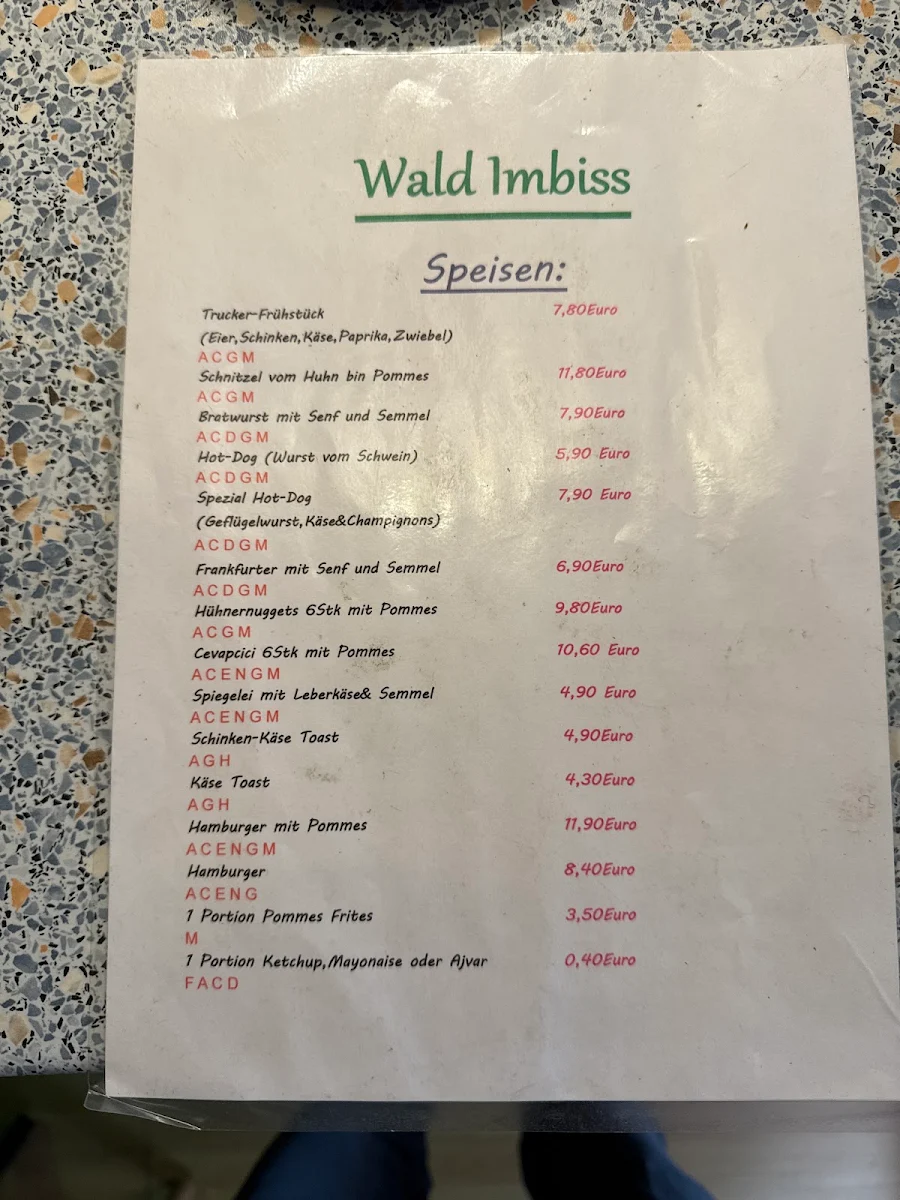 Wald Imbiss
Speisen:
Trucker-Frühstück 7,80Euro
(Eier,Schinken,Käse,Paprika,Zwiebel)
A C G M
Schnitzel vom Huhn bin Pommes 11,80Euro
A C G M
Bratwurst mit Senf und Semmel 7,90Euro
A C D G M
Hot-Dog (Wurst vom Schwein) 5,90 Euro
A C D G M
Spezial Hot-Dog 7,90 Euro
(Geflügelwurst,Käse&Champignons)
A C D G M
Frankfurter mit Senf und Semmel 6,90Euro
A C D G M
Hühnernuggets 6Stk mit Pommes 9,80Euro
A C G M
Cevapcici 6Stk mit Pommes 10,60 Euro
A C E N G M
Spiegelei mit Leberkäse& Semmel 4,90 Euro
A C E N G M
Schinken-Käse Toast 4,90Euro
A G H
Käse Toast 4,30Euro
A G H
Hamburger mit Pommes 11,90Euro
A C E N G M
Hamburger 8,40Euro
A C E N G
1 Portion Pommes Frites 3,50Euro
M
1 Portion Ketchup,Mayonaise oder Ajvar 0,40Euro
F A C D